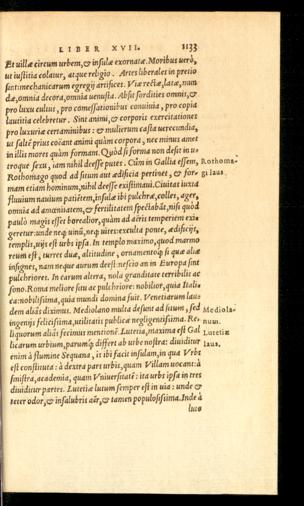 LIBER XVII. 1133
Et uillæ circum urbem, & insulæ exornatæ. Moribus uerò,
ut iustitia colatur, atque religio. Artes liberales in precio
sunt: mechanicarum egregij artifices. Viæ rectæ, latæ, mun
dæ, omnia decora, omnia uenusta. Absit sordities omnis, &
pro luxu cultus, pro comessationibus conuiuia, pro copia
lautitia celebretur. Sint animi, & corporis exercitationes
pro luxuria certaminibus: & mulierum casta uerecundia,
ut saltē prius coëant animi quàm corpora, nec minus amet
in illis mores quàm formam. Quòd si forma non desit in u-
troque sexu, iam nihil deesse putes. Cùm in Gallia essem, Rothoma-
Rothomago quod ad situm aut ædificia pertinet, & for- gi laus.
mam etiam hominum, nihil deesse existimaui. Ciuitas iuxta
fluuium nauium patiētem, insulæ ibi pulchræ, colles, ager,
omnia ad amœnitatem, & fertilitatem spectabāt, nisi quòd
paulò magis esset borealior, quàm ad aëris temperiem exi-
geretur: unde neque uinū, neque uites: exculta ponte, ædificijs,
templis, uijs est urbs ipsa. In templo maximo, quod marmo
reum est, turres duæ, altitudine, ornamentoque si quæ aliæ
insignes, nam neque aurum deest: nescio an in Europa sint
pulchriores. In earum altera, nola granditate terribilis ac
sono. Roma meliore situ ac pulchriore: nobilior, quia Itali-
ca: nobilissima, quia mundi domina fuit. Venetiarum laus
dem aliàs diximus. Mediolano multa desunt ad situm, sed Mediola-
ingenij felicissima, utilitatis publicæ negligentissima. Re- num.
liquorum aliàs fecimus mentionē Lutetia, maxima est Gal Lutetiæ
licarum urbium, parumque differt ab urbe nostra: diuiditur laus.
enim à flumine Sequana, it ibi facit insulam, in qua Vrbs
est constituta: à dextra pars urbis, quam Villam uocant: à
sinistra, academia, quam Vniuersitatē: ita urbs ipsa in tres
diuiditur partes. Lutetiæ lutum semper est in uia: unde &
teter odor, & insalubris aër, & tamen populosissima. Inde à
luto